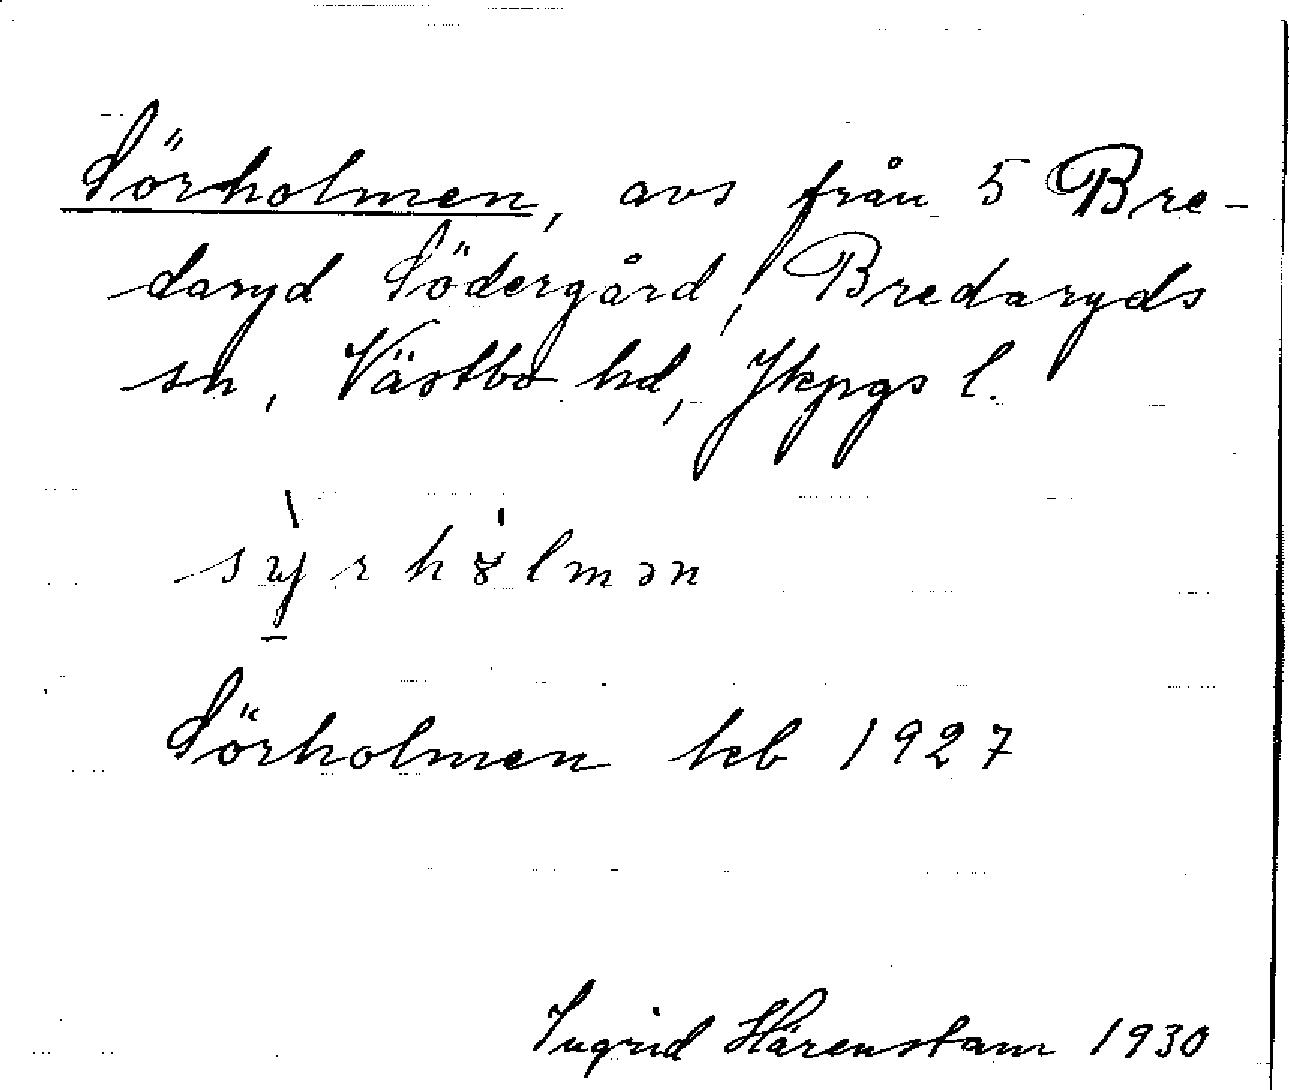 Sörholmen, avs från 5 Bre-
daryd Södergård, Bredaryds
sn, Västbo hd, Jkpgs l.
Sörholmen kb 1927
Ingrid Härenstam 1930